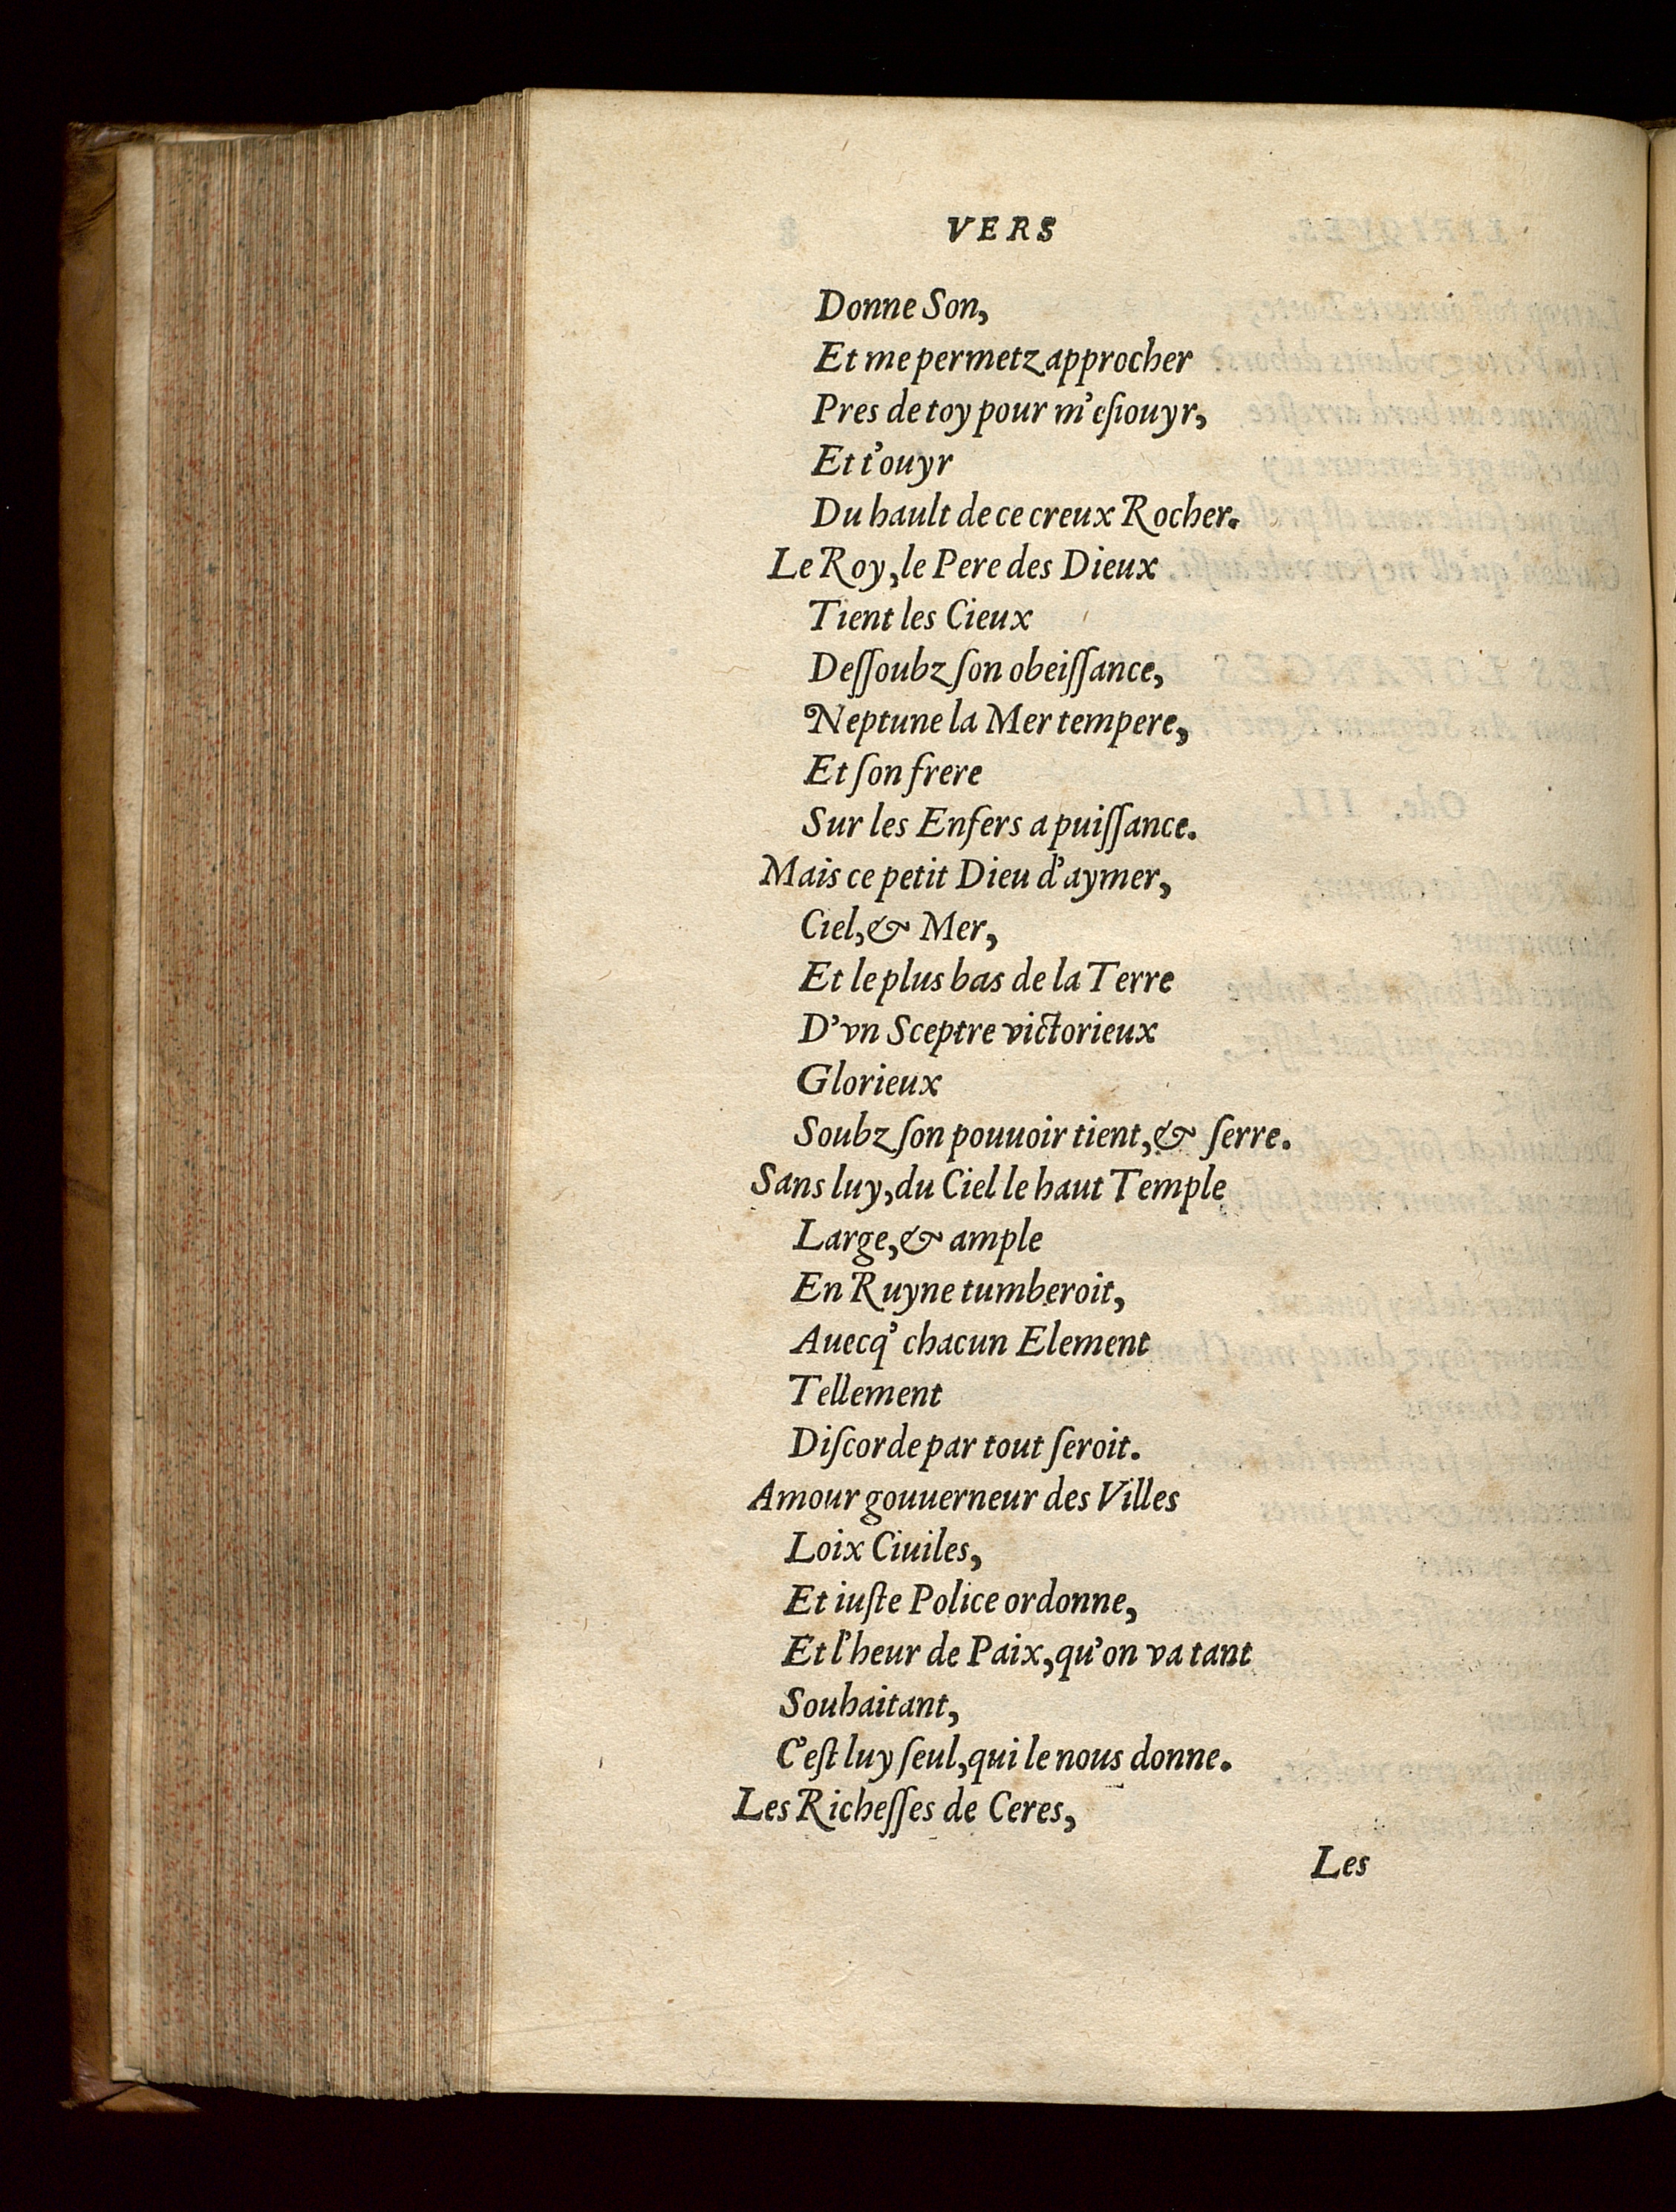 VERS
Donne Son,
Et me permetz approcher
Pres de toy pour m'eſiouyr,
Et t'ouyr
Du hault de ce creux Rocher.
Le Roy, le Pere des Dieux
Tient les Cieux
Deſſoubz ſon obeiſſance,
Neptune la Mer tempere,
Et ſon frere
Sur les Enfers a puiſſance.
Mais ce petit Dieu d'aymer,
Ciel, & Mer,
Et le plus bas de la Terre
D'vn Sceptre victorieux
Glorieux
Soubz ſon pouuoir tient, & ſerre.
Sans luy, du Ciel le haut Temple
Large, & ample
En Ruyne tumberoit,
Auecq' chacun Element
Tellement
Diſcorde par tout ſeroit.
Amour gouuerneur des Villes
Loix Ciuiles,
Et iuſte Police ordonne,
Et l'heur de Paix, qu'on va tant
Souhaitant,
C'eſt luy ſeul, qui le nous donne.
Les Richeſſes de Ceres,
Les